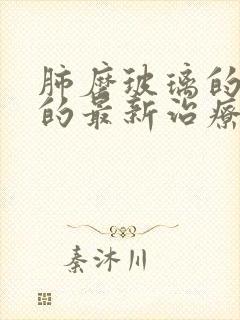 肺磨玻璃的
的最新治療
秦沐川